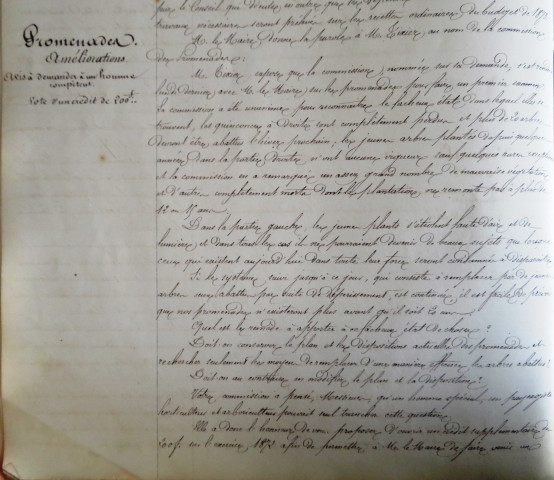 Promenades.
Améliorations.
Avis à demander à un homme
compétent.
Vote d'un crédit de 200f.
pour le Conseil qui décide, en outre que les
travaux nécessaires seront prélevés sur les recettes ordinaires du budget de 187
M. le Maire donne la parole à M. Texier au nom de la commission
des promenades.
M. Texier expose que la commission nommée sur sa demande, s'est
lundi dernier, avec M. le Maire, sur les promenades pour faire un premier examen
la commission a été unanime pour reconnaître le fâcheux état dans lequel elles se
trouvent, les quinconces à droite sont complètement perdus et plus de arbres
devront être abattus l'hiver prochain; les jeunes arbres plantés depuis quelques
années dans la partie droite, n'ont aucune vigueur sauf quelques uns
et la commission en a remarqué un assez grand nombre de mauvaise végétation
et d'autres complètement morts dont la plantation ne remonte pas à plus de
12 ou 15 ans.
Dans la partie gauche les jeunes plants s'étiolent faute d'air et de
lumière, et dans tous les cas ils ne pourraient devenir de beaux sujets que lorsque
ceux qui existent aujourd'hui dans toute leur force seront condamnés à disparaître
Si le système suivi jusqu'à ce jour, qui consiste à remplacer par de jeunes
arbres ceux abattus par suite de dépérissement, est continué, il est facile de prévoir
que nos promenades n'existeront plus avant qu'il soit 20 ans.
Quel est le remède à apporter à ce fâcheux état de choses?
Doit-on conserver le plan et les dispositions actuelles des promenades et
rechercher seulement les moyens de remplacer d'une manière les arbres abattus?
Doit-on au contraire en modifier le plan et la disposition?
Votre commission a pensé, Messieurs, qu'un homme spécial, un paysagiste
horticulteur et arboriculteur pouvait seul trancher cette question.
Elle a donc l'honneur de vous proposer d'ouvrir un crédit supplémentaire de
200f. sur l'exercice 1872 afin de permettre à M. le Maire de faire venir un